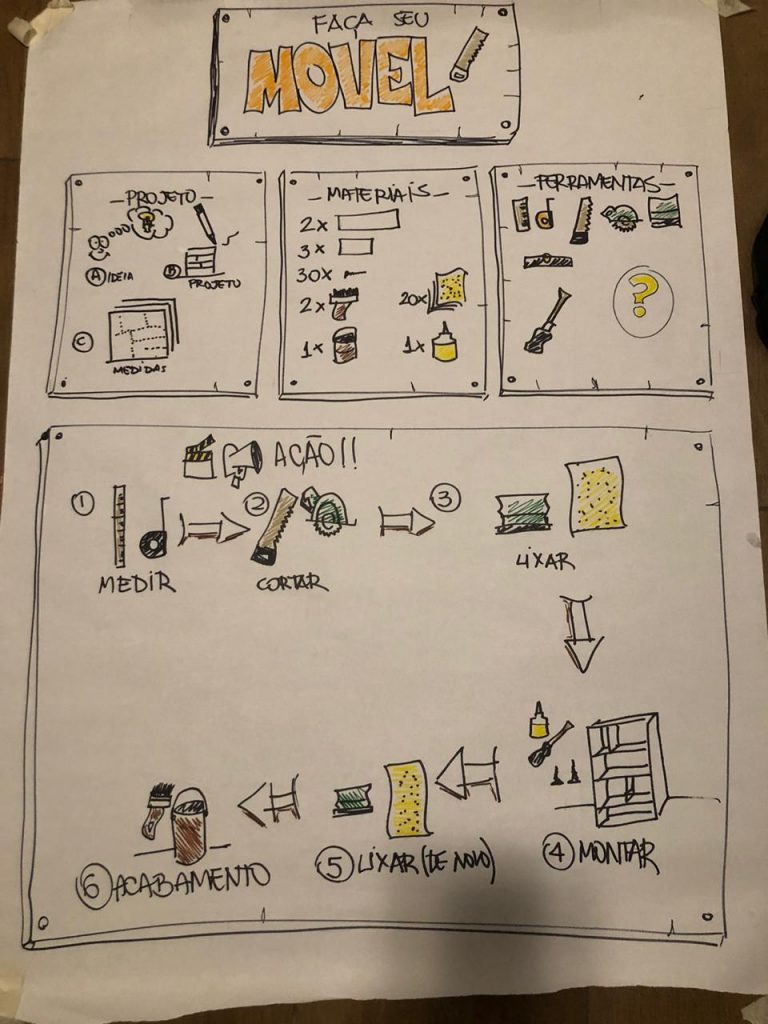 FAÇA SEU
MOVEL
-PROJETO-
A IDEIA
B PROJETO
C
MEDIDAS
-MATERIAIS-
2x
3x
30x
2x
20x
1x
1x
-FERRAMENTAS-
?
AÇÃO!!
1 MEDIR
2 CORTAR
3 LIXAR
4 MONTAR
5 LIXAR (DE NOVO)
6 ACABAMENTO